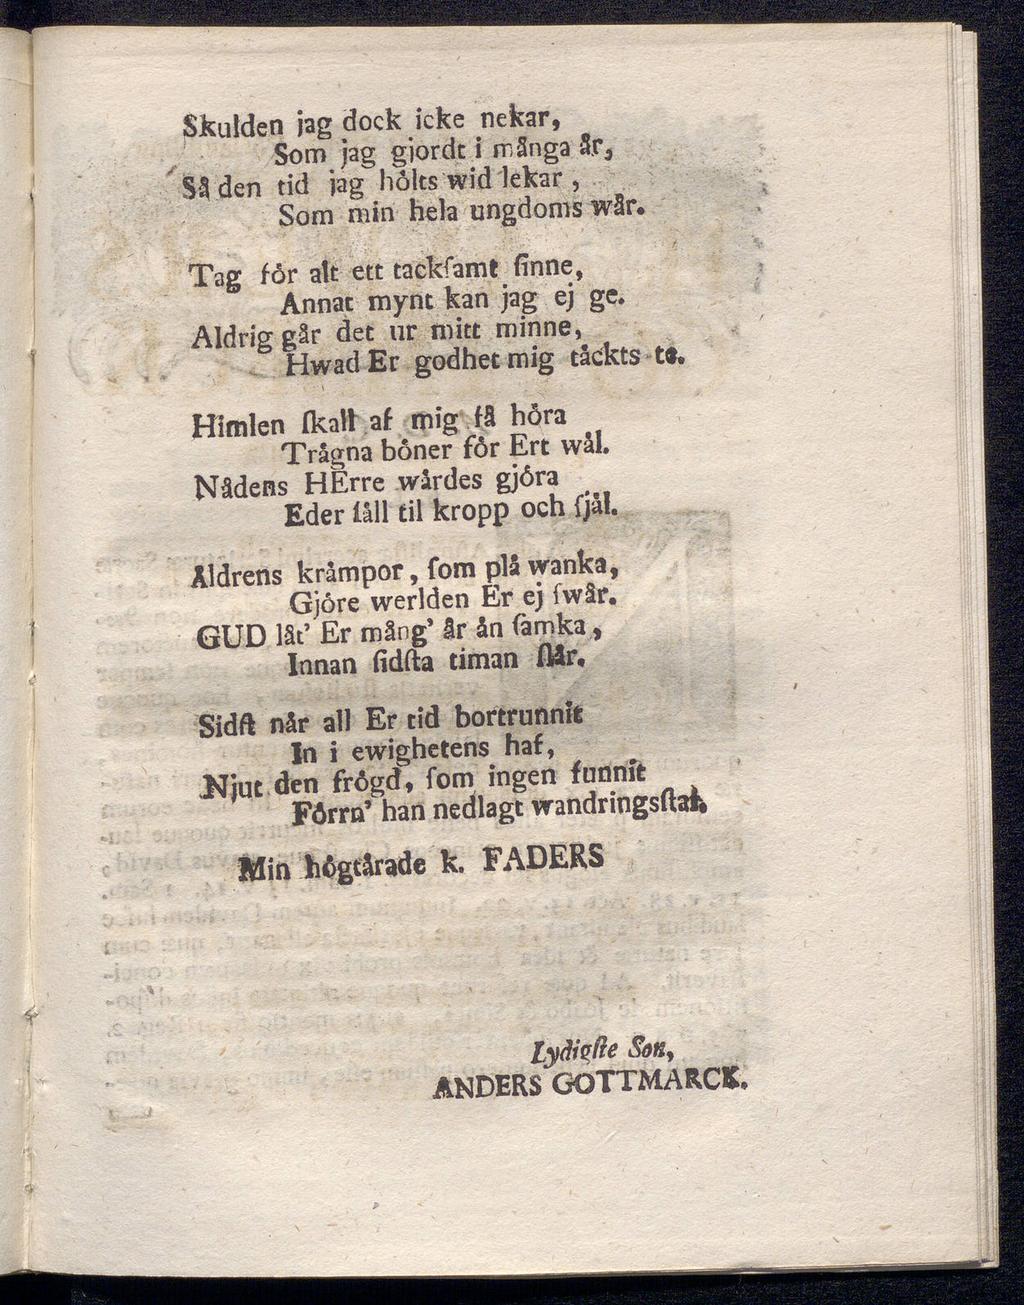 Skulden jag dock icke nekar,
Som jag giordt i många år,
Så den tid jag hölts wid lekar,
Som min hela ungdoms wår.
Tag för alt ett tackſamt ſinne,
Annat mynt kan jag ej ge.
Aldrig går det ur mitt minne,
Hwad Er godhet mig täckts te.
Himlen ſkall af mig få höra
Trägna böner för Ert wäl.
Nådens HErre wärdes gjöra
Eder ſäll til kropp och ſjäl.
Åldrens krämpor, ſom plä wanka,
Gjöre werlden Er ej ſwår.
GUD låt' Er mång' år än ſamka,
Innan ſidſta timan ſlår.
Sidſt når all Er tid bortrunnit
In i ewighetens haf,
Njut den frögd, ſom ingen funnit
Förrn' han nedlagt wandringsſtaf.
Min högtärade k. FADERS
Lydigſte Son,
ANDERS GOTTMARCK.